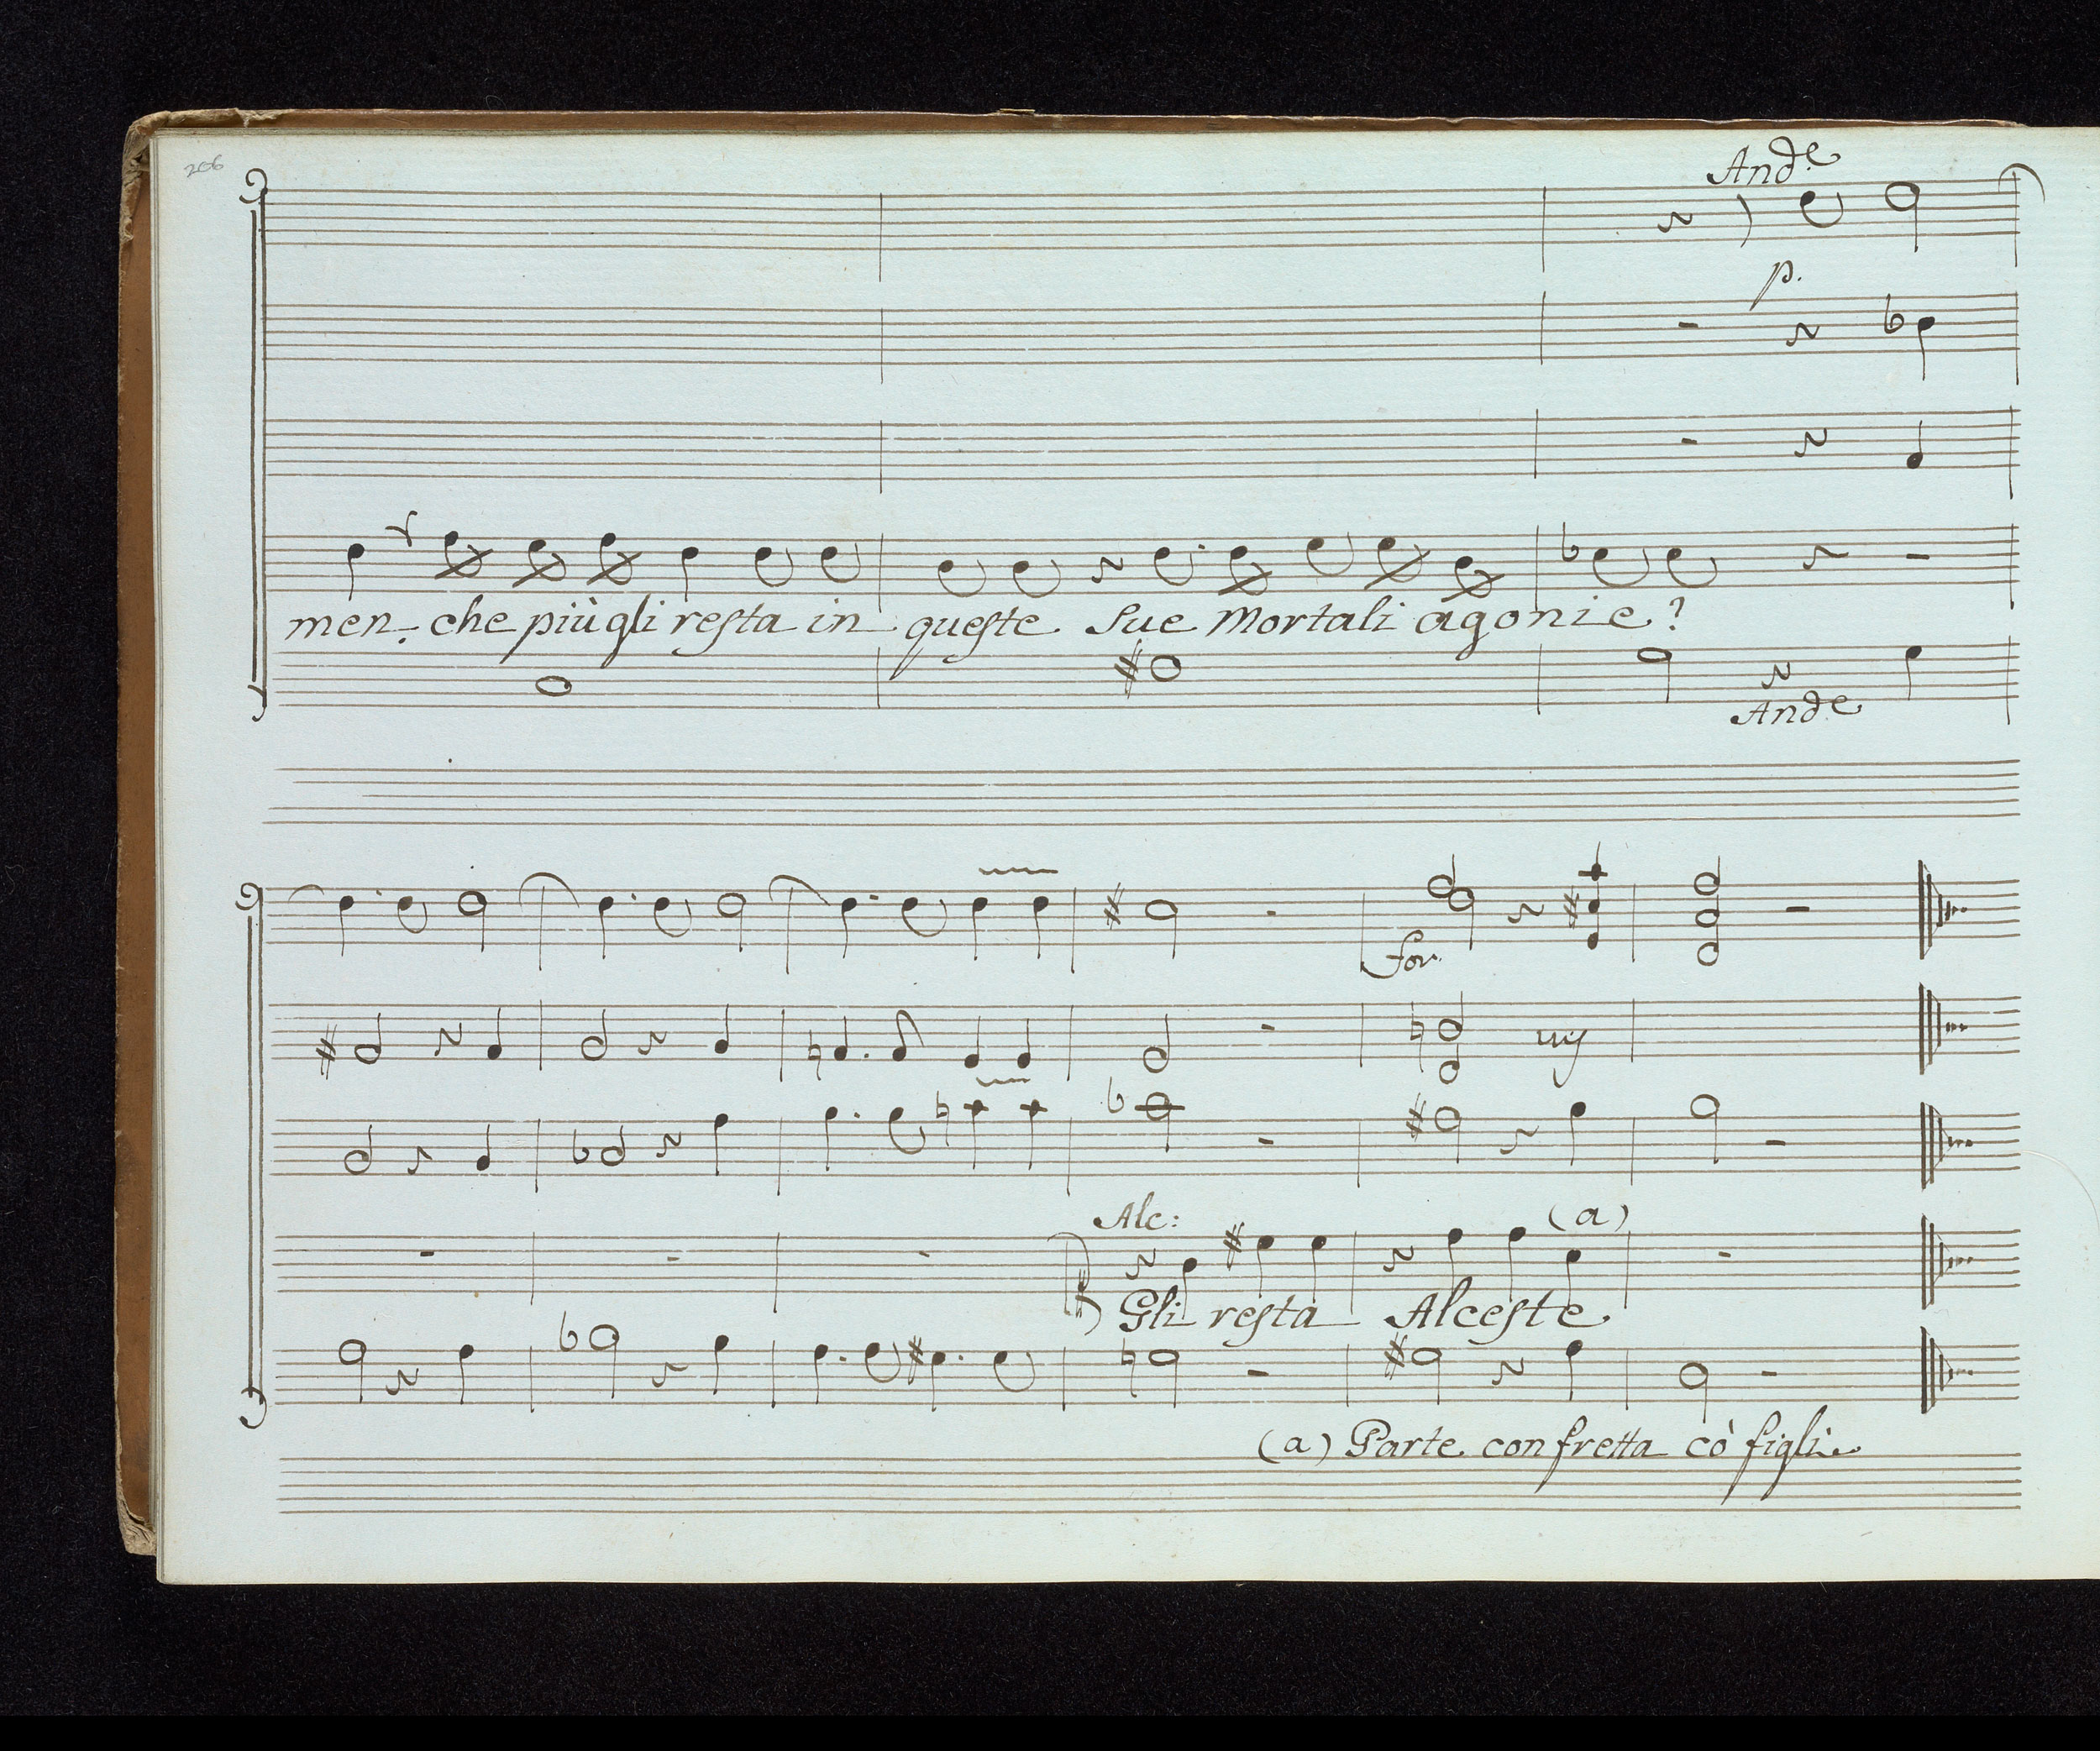 206
And.e
p.
men- che più gli reſta in queſte sue mortali agonie?
And.e
for.
Alc:
(a)
Gli reſta Alceſte
(a) Parte con fretta cò figli